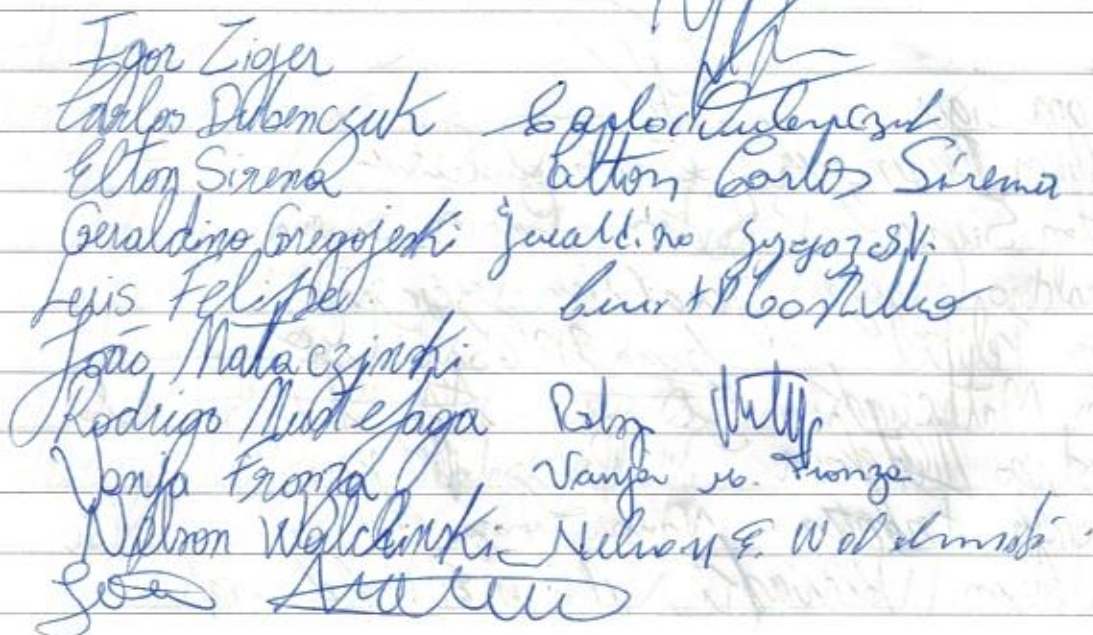 Igor Ziger
Carlos Dubenczuk Carlos Dubenczuk
Elton Sirena Elton Carlos Sirena
Geraldino Gregojeski Geraldino
Luis Felipe Castilho
João Mataczinski
Rodrigo Mustefaga
Vanja Fronza Vanja M. Fronza
Nelson Walchinski Nelson E. Wolchinski
João